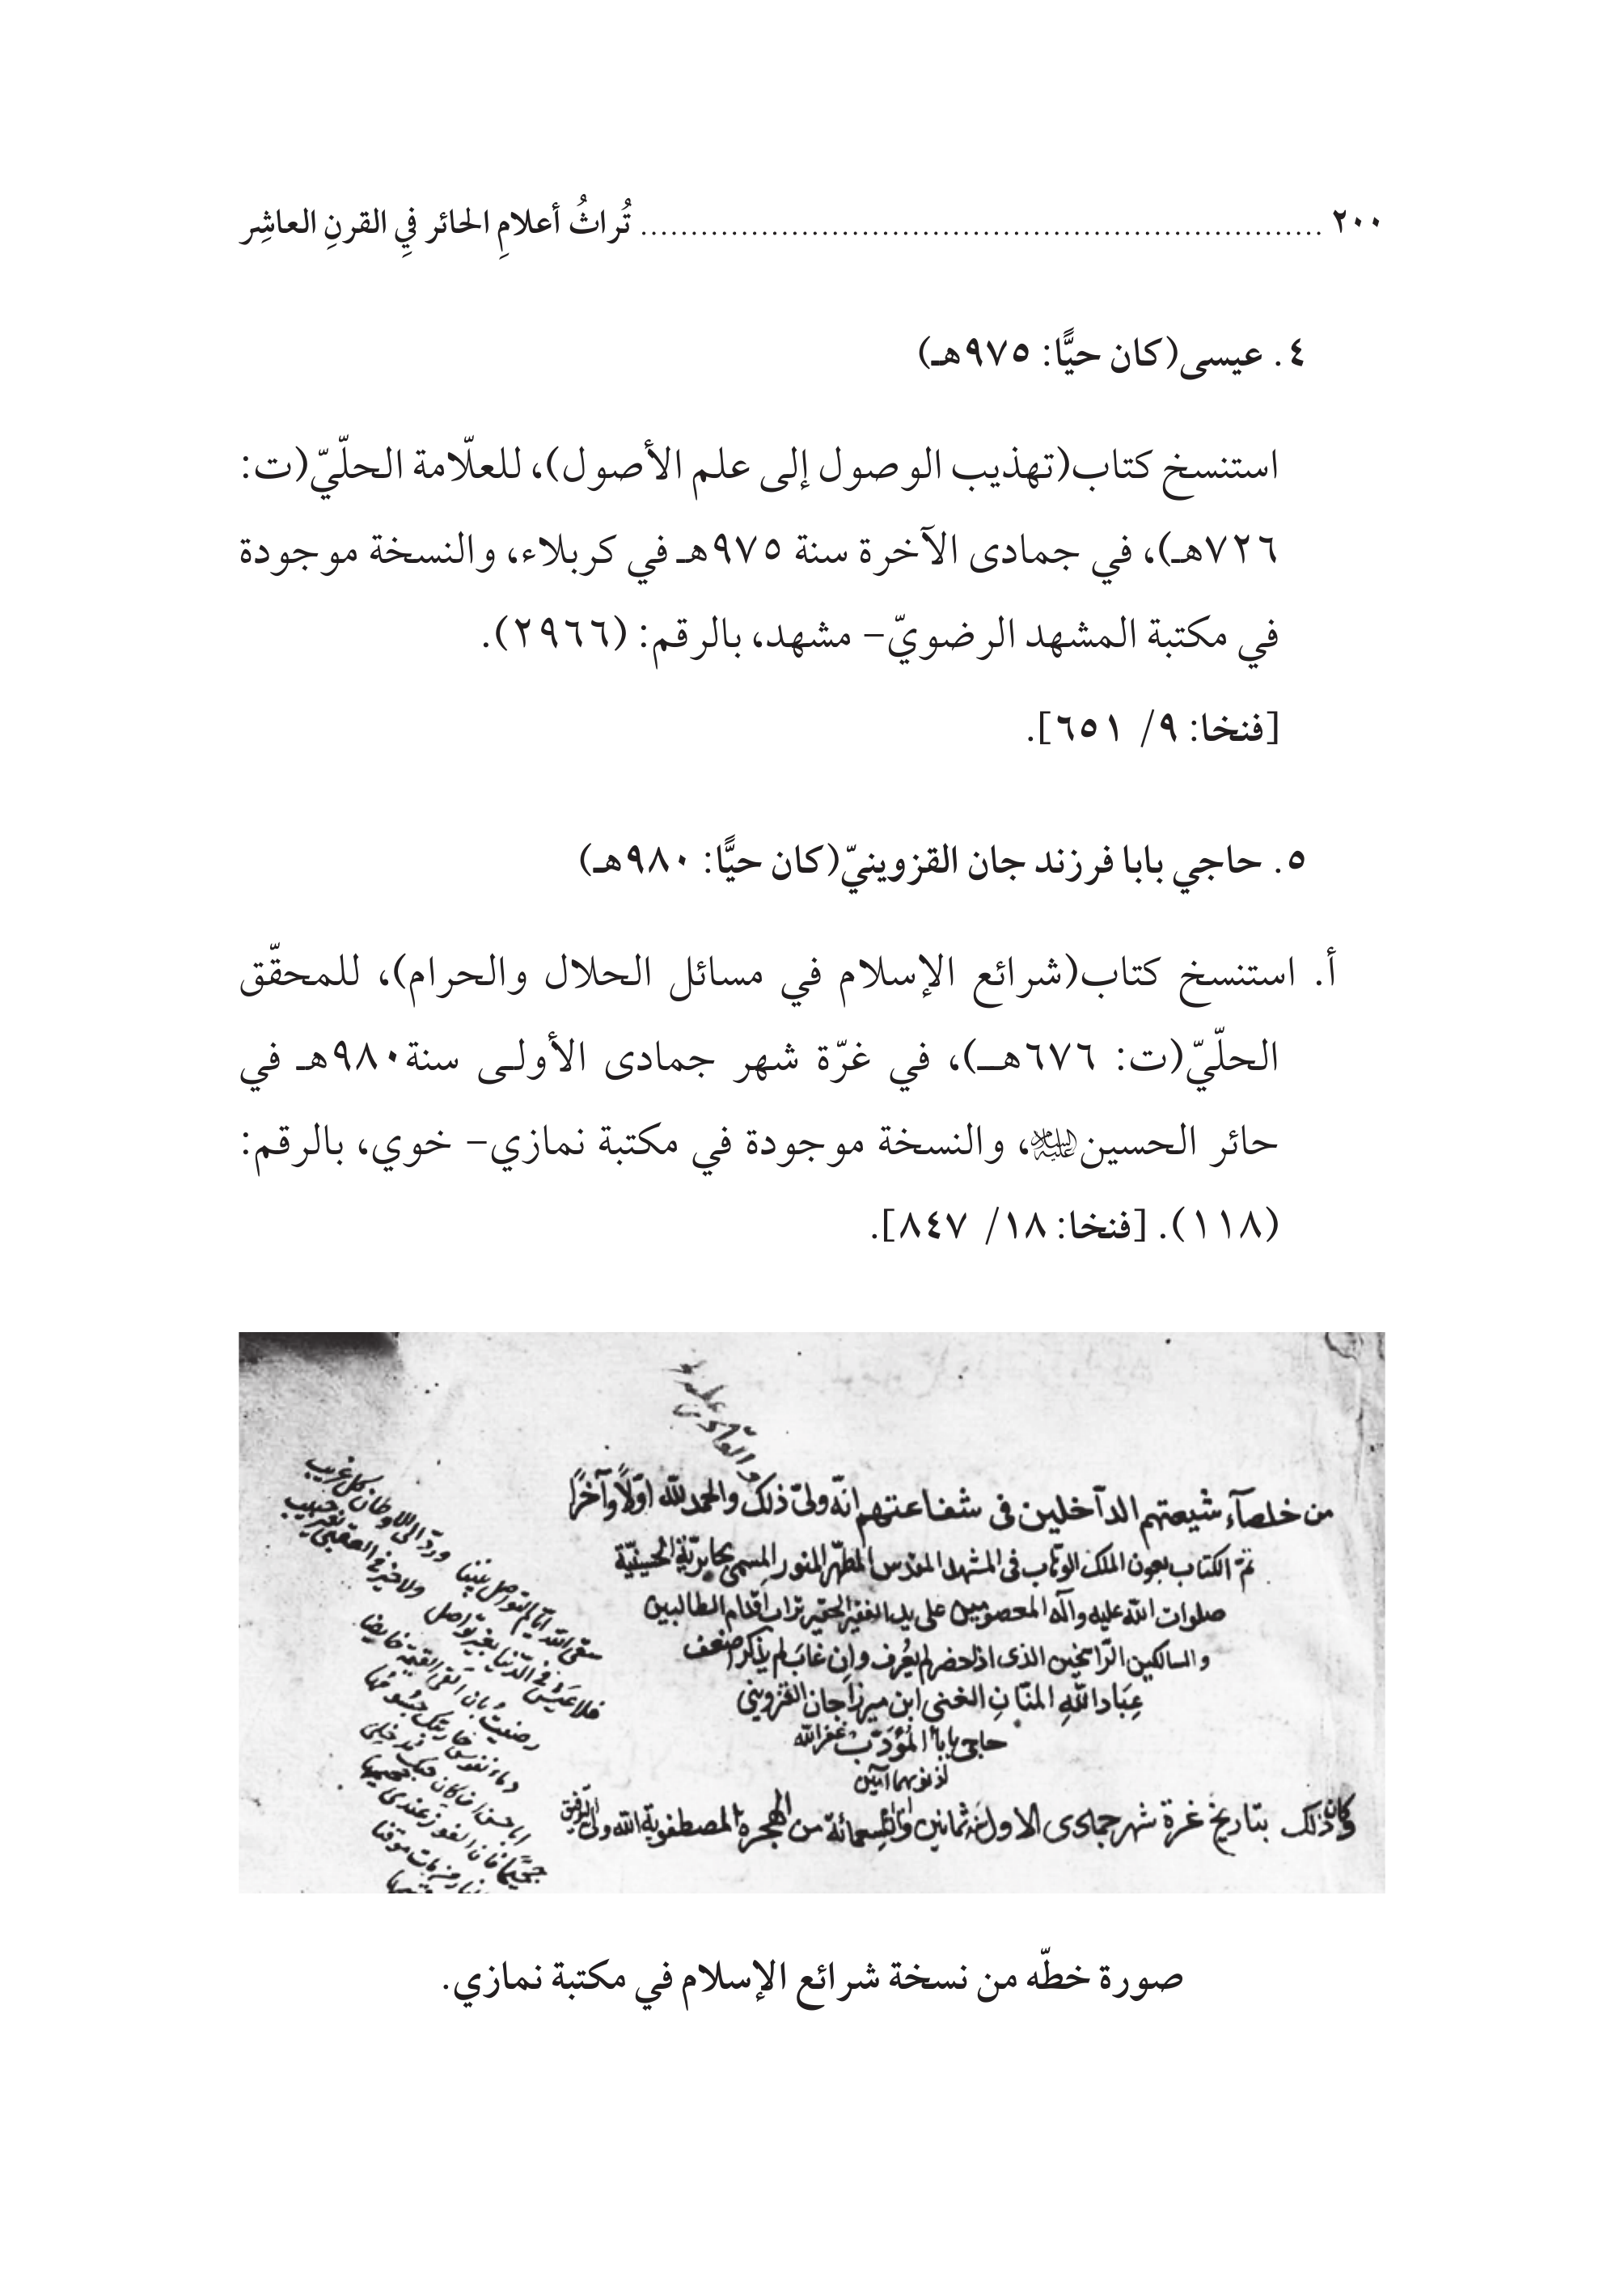 ٢٠٠ ........................................................................ تُراثُ أعلامِ الحائر فِي القرنِ العاشِر
٤. عيسى(كان حيًّا: ٩٧٥هـ)
استنسخ كتاب(تهذيب الوصول إلى علم الأصول)، للعلّامة الحلّيّ(ت:
٧٢٦هـ)، في جمادى الآخرة سنة ٩٧٥هـ في كربلاء، والنسخة موجودة
في مكتبة المشهد الرضويّ– مشهد، بالرقم: (٢٩٦٦).
[فنخا: ٩/ ٦٥١].
٥. حاجي بابا فرزند جان القزوينيّ(كان حيًّا: ٩٨٠هـ)
أ. استنسخ كتاب(شرائع الإسلام في مسائل الحلال والحرام)، للمحقّق
الحلّيّ(ت: ٦٧٦هـ)، في غرّة شهر جمادى الأولى سنة٩٨٠هـ في
حائر الحسين عليه السلام، والنسخة موجودة في مكتبة نمازي– خوي، بالرقم:
(١١٨). [فنخا: ١٨/ ٨٤٧].
من خلصآء شيعتهم الدآخلين فى شفاعتهم انّه ولىّ ذلك والحمد للّه اوّلاً وآخرًا
تمّ الكتاب بعون الملك الوهّاب فى المشهد المقدس المطهّر المنور المسمى بحايريّة الحسينيّة
صلوات اللّه عليه وآله المعصومين على يد الفقير الحقير تراب اقدام الطالبين
والسالكين الرّاسخين الذى اذا حضر لم يُعرف وإن غابَ لم يذكر اضعف
عِبَاد اللّهِ المنّانِ الغنى ابن ميرزا جان القزوينى
حاجى بابا المُؤدّب غفر اللّه
لذنوبهما آمين
وكان ذلك بتاريخ غرة شهر جمادى الاول سنة ثمانين وتسعمائة من الهجرة المصطفوية اللّه ولى التوفيق
صورة خطّه من نسخة شرائع الإسلام في مكتبة نمازي.